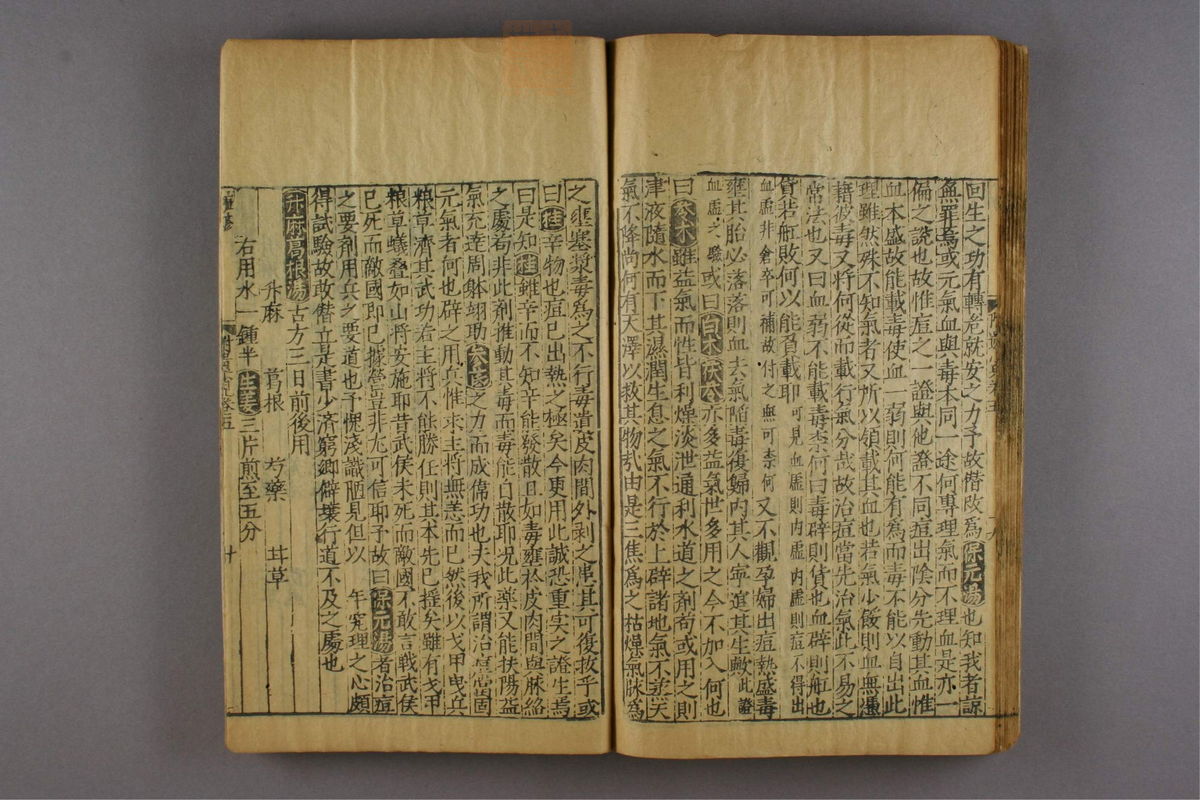 回生之功有轉危就安之力予故僭改爲保元湯也知我者諒
無罪焉或元氣血與毒本同一途何專理氣而不理血是亦一
偏之說也故惟痘之一證與他證不同痘出陰分先動其血惟
血本盛故能載毒使血一弱則何能有爲而毒不能以自出此
理雖然殊不知氣者又所以領載其血也若氣少餒則血無憑
藉彼毒又將何從而載行氣分哉故治痘當先治氣此不易之
常法也又曰血弱不能載毒柰何曰毒辟則貨也血辟則舡也
貨若舡敗何以能負載耶可見血虛則內虛內虛則痘不得出
血虛非倉卒可補故付之無可柰何又不觀孕婦出痘熱盛毒
壅其胎必落落則血去氣陷毒復歸内其人寧遑其生歟此證
血虛之驗或曰白朮茯苓亦多益氣世多用之今不加入何也
曰參朮雖益氣而性皆利燥淡泄通利水道之劑苟或用之則
津液隨水而下其濕潤生息之氣不行於上辟諸地氣不差天
氣不降尚何有天澤以救其物乎由是三焦爲之枯燥氣脉爲
之壅塞漿毒爲之不行毒遺皮肉間外剥之患其可復按乎或
曰桂辛物也痘已出熱之極矣今更用此誠恐重实之證生焉
曰是知桂雖辛而不知辛能發散且如毒壅於皮肉間與脉絡
之處苟非此劑推動其毒而毒能自散耶况此藥又能扶陽益
氣充達周躬翊助參芪之力而成偉功也夫我所謂治當固
元氣者何也辟之用兵惟求主將無恙而已然後以戈甲曳兵
粮草濟其武功若主將不能勝任則其本先已摇矣雖有戈甲
粮草蟻叠如山將安施耶昔武侯未死而敵國不敢言戰武侯
已死而敵國即已據營豈非尤可信耶予故曰保元湯者治痘
之要劑用兵之要道也予愧淺識陋見但以年究理之心頗
得試驗故敢僭立是書少濟窮鄉僻壤行道不及之處也
升麻葛根湯古方三日前後用
升麻 葛根 芍藥 甘草
右用水一鍾半生姜三片煎至五分